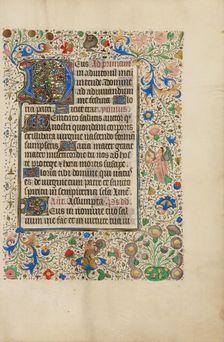 Deus Ad primam
in adiutorium
meum intende domine
ad adiuvandum
me festina Glo
ria patri Sicut erat ymnus
Memento salutis auctor
quod nostri quondam corporis
ex illibata virgine nascendo
formam sumpseris Maria
mater gracie
mater misericordie tu nos ab hos
te protege in hora mortis suscipe
Gloria tibi domine qui natus
es de virgine cum patre
in sempiterna secula Amen
Ant Assumpta Ps
Deus in nomine tuo sal
vum me fac et in